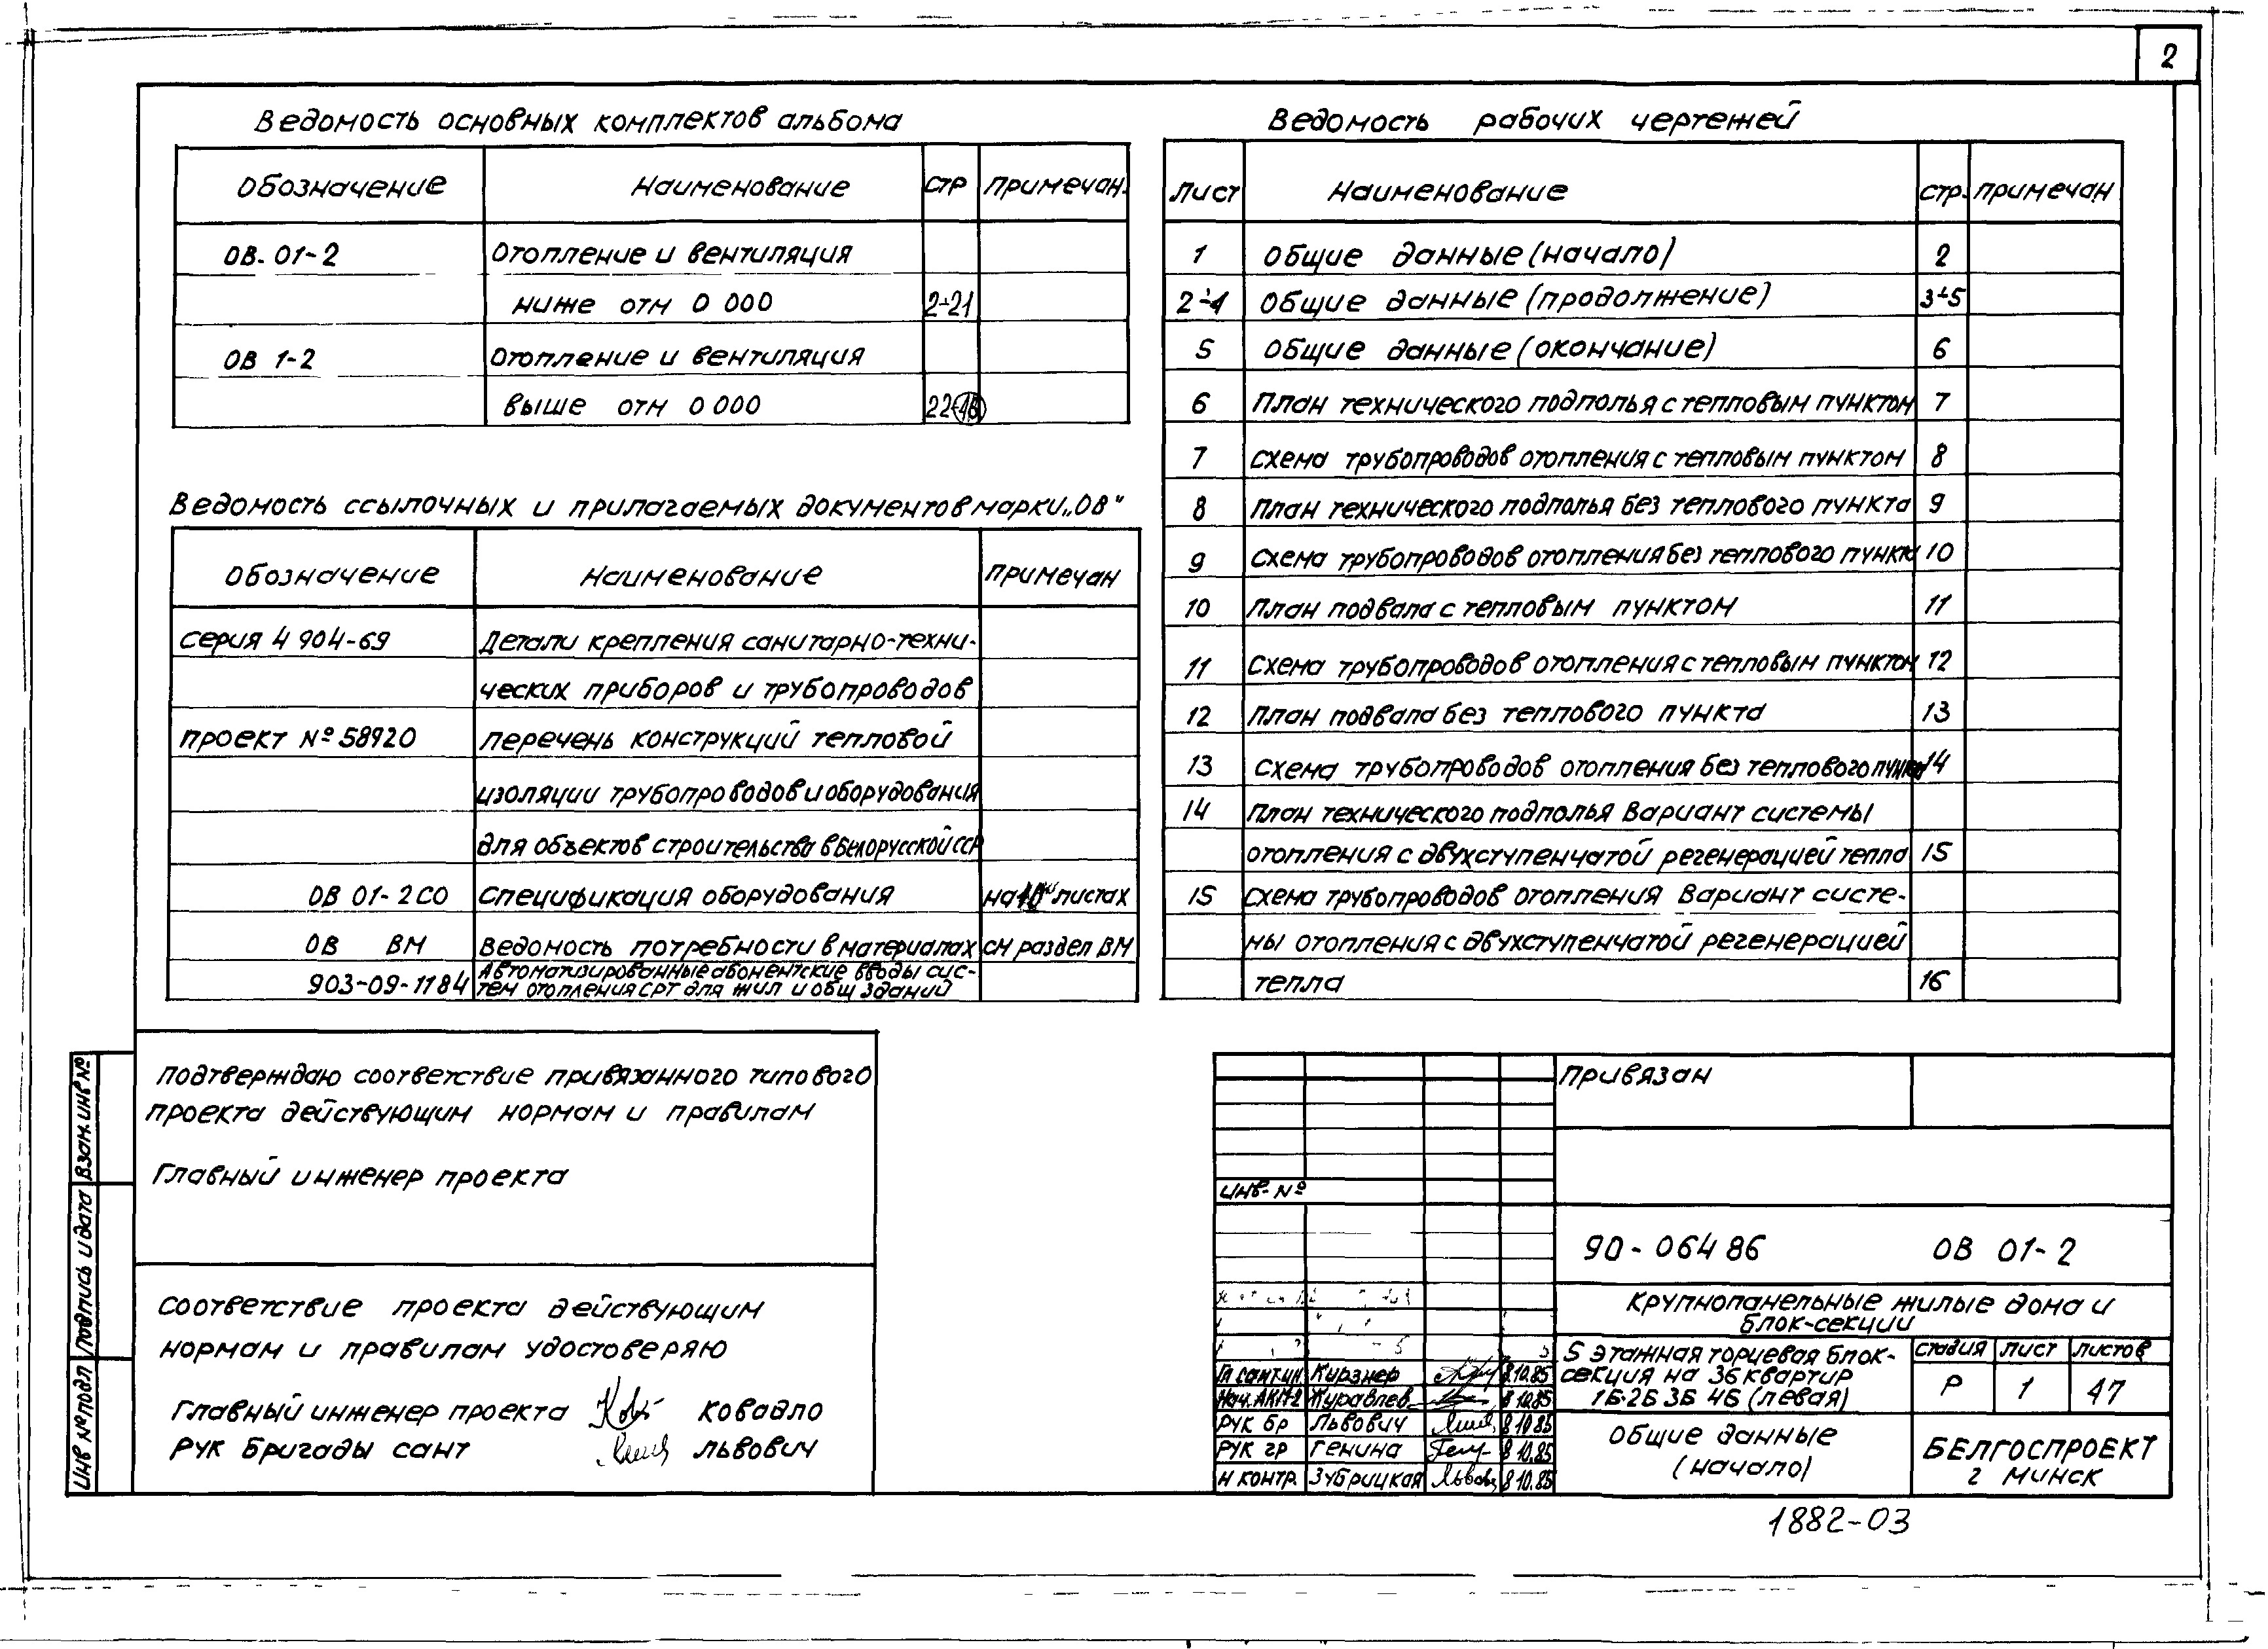 2
Ведомость основных комплектов альбома
Обозначение Наименование стр примечан.
ОВ. 01-2 Отопление и вентиляция
ниже отм 0 000 2÷21
ОВ 1-2 Отопление и вентиляция
выше отм 0 000 22
Ведомость ссылочных и прилагаемых документов марки „ОВ"
Обозначение Наименование примечан
серия 4 904-69 Детали крепления санитарно-техни-
ческих приборов и трубопроводов
проект № 58920 перечень конструкций тепловой
изоляции трубопроводов и оборудования
для объектов строительства в Белорусской ССР
ОВ 01-2СО Спецификация оборудования на листах
ОВ ВМ Ведомость потребности в материалах см раздел ВМ
903-09-11 84 Автоматизированные абонентские вводы сис-
тем отопления СРТ для жил и общ зданий
Ведомость рабочих чертежей
Лист Наименование стр. примечан
1 Общие данные (начало) 2
2÷4 Общие данные (продолжение) 3÷5
5 Общие данные (окончание) 6
6 План технического подполья с тепловым пунктом 7
7 схема трубопроводов отопления с тепловым пунктом 8
8 План технического подполья без теплового пункта 9
9 Схема трубопроводов отопления без теплового пункта 10
10 План подвала с тепловым пунктом 11
11 Схема трубопроводов отопления с тепловым пунктом 12
12 План подвала без теплового пункта 13
13 схема трубопроводов отопления без теплового пункта 14
14 План технического подполья Вариант системы
отопления с двухступенчатой регенерацией тепла 15
15 Схема трубопроводов отопления Вариант систе-
мы отопления с двухступенчатой регенерацией
тепла 16
подтверждаю соответствие привязанного типового
проекта действующим нормам и правилам
Главный инженер проекта
Соответствие проекта действующим
нормам и правилам удостоверяю
Главный инженер проекта Ковадло
Рук бригады сант Львович
Инв № подл Подпись и дата Взам. инв №
Привязан
инв. №
90-064 86 ОВ 01-2
Крупнопанельные жилые дома и
блок-секции
5 этажная торцевая блок-
секция на 36 квартир
1Б.2Б 3Б 4Б (левая)
стадия лист листов
Р 1 47
Гл сантин Курзнер 8.10.85
Нач. АКМ-2 Журавлев 8 10.85
Рук бр Львович 8 10.85
Рук гр Генина 8 10.85
Н контр. Зубрицкая 8 10.85
Общие данные
(начало)
БЕЛГОСПРОЕКТ
г Минск
1882-03